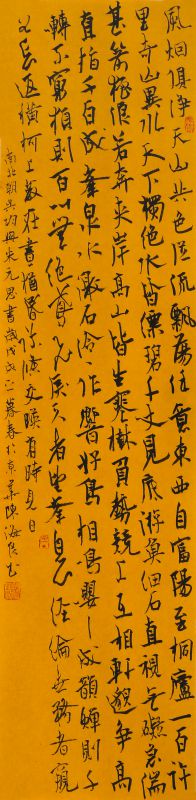 風烟俱净天山共色從流飄蕩任意東西自富陽至桐廬一百許
里奇山異水天下獨絶水皆縹碧千丈見底游魚細石直視無礙急湍
甚箭猛浪若奔夾岸高山皆生寒樹負勢競上互相軒邈爭高
直指千百成峯泉水激石泠泠作響好鳥相鳴嚶嚶成韻蟬則千
轉不窮猿則百叫無絶鳶飛戾天者望峯息心經綸世務者窺
谷忘返橫柯上蔽在晝猶昏疏條交映有時見日
南北朝吳均與朱元思書歲戊戌之暮春於京華陳海良書